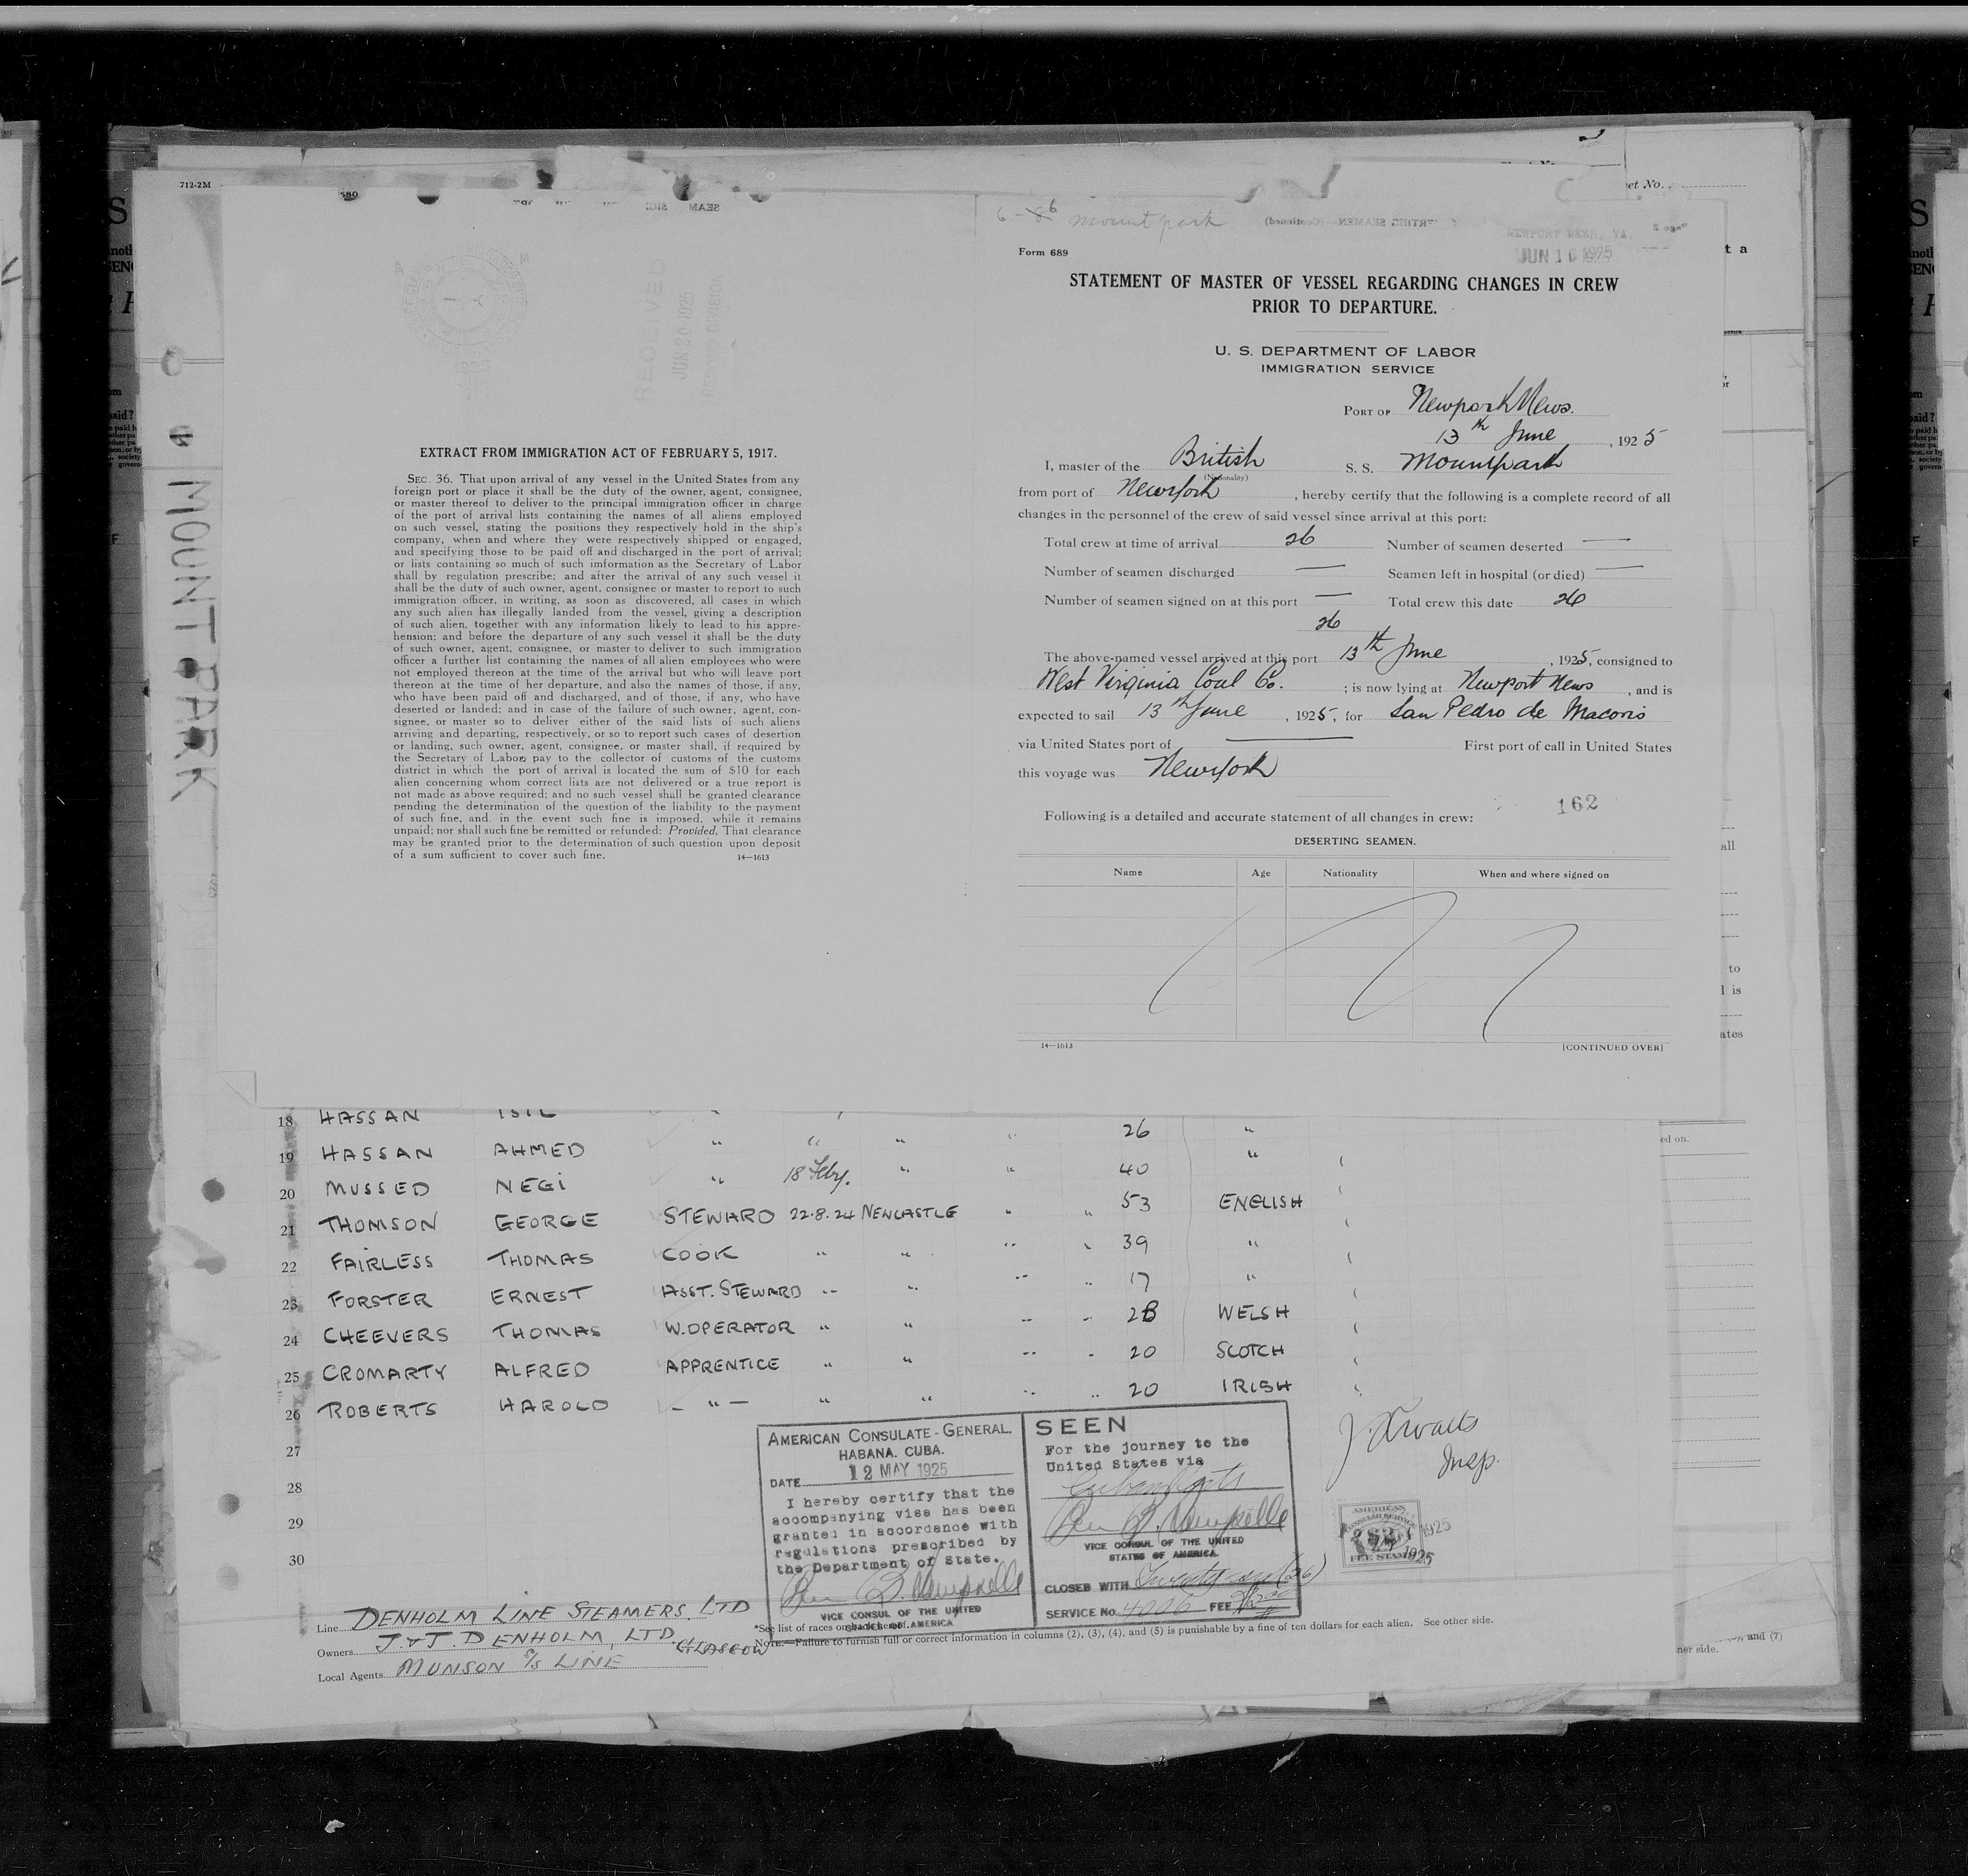 712-2M
580
MOUNTPARK
RECEIVED
JUN 20 1925
DIVISION
EXTRACT FROM IMMIGRATION ACT OF FEBRUARY 5, 1917.
SEC. 36. That upon arrival of any vessel in the United States from any
foreign port or place it shall be the duty of the owner, agent, consignee,
or master thereof to deliver to the principal immigration officer in charge
of the port of arrival lists containing the names of all aliens employed
on such vessel, stating the positions they respectively hold in the ship's
company, when and where they were respectively shipped or engaged,
and specifying those to be paid off and discharged in the port of arrival;
or lists containing so much of such imformation as the Secretary of Labor
shall by regulation prescribe; and after the arrival of any such vessel it
shall be the duty of such owner, agent, consignee or master to report to such
immigration officer, in writing, as soon as discovered, all cases in which
any such alien has illegally landed from the vessel, giving a description
of such alien, together with any information likely to lead to his appre-
hension; and before the departure of any such vessel it shall be the duty
of such owner, agent, consignee, or master to deliver to such immigration
officer a further list containing the names of all alien employees who were
not employed thereon at the time of the arrival but who will leave port
thereon at the time of her departure, and also the names of those, if any,
who have been paid off and discharged, and of those, if any, who have
deserted or landed; and in case of the failure of such owner, agent, con-
signee, or master so to deliver either of the said lists of such aliens
arriving and departing, respectively, or so to report such cases of desertion
or landing, such owner, agent, consignee, or master shall, if required by
the Secretary of Labor, pay to the collector of customs of the customs
district in which the port of arrival is located the sum of $10 for each
alien concerning whom correct lists are not delivered or a true report is
not made as above required; and no such vessel shall be granted clearance
pending the determination of the question of the liability to the payment
of such fine, and, in the event such fine is imposed, while it remains
unpaid; nor shall such fine be remitted or refunded: Provided, That clearance
may be granted prior to the determination of such question upon deposit
of a sum sufficient to cover such fine.
14—1613
6-86 Mountpark
NEWPORT NEWS, VA.
JUN 16 1925
Form 689
STATEMENT OF MASTER OF VESSEL REGARDING CHANGES IN CREW
PRIOR TO DEPARTURE.
U. S. DEPARTMENT OF LABOR
IMMIGRATION SERVICE
PORT OF Newport News.
13th June, 1925
I, master of the British S. S. Mountpark
(Nationality)
from port of New York, hereby certify that the following is a complete record of all
changes in the personnel of the crew of said vessel since arrival at this port:
Total crew at time of arrival 26 Number of seamen deserted —
Number of seamen discharged — Seamen left in hospital (or died) —
Number of seamen signed on at this port — Total crew this date 26
26
The above-named vessel arrived at this port 13th June, 1925, consigned to
West Virginia Coal Co.; is now lying at Newport News, and is
expected to sail 13th June, 1925, for San Pedro de Macoris
via United States port of — First port of call in United States
this voyage was New York
162
Following is a detailed and accurate statement of all changes in crew:
DESERTING SEAMEN.
Name Age Nationality When and where signed on
14—1613 [CONTINUED OVER]
18 HASSAN 26 "
19 HASSAN AHMED " " " " 40 "
20 MUSSED NEGI " 18 Feby. " "
21 THOMSON GEORGE STEWARD 22.8.24 NEWCASTLE " " 53 ENGLISH
22 FAIRLESS THOMAS COOK " " " " 39 "
23 FORSTER ERNEST ASST. STEWARD " " " " 17 "
24 CHEEVERS THOMAS W. OPERATOR " " " " 28 WELSH
25 CROMARTY ALFRED APPRENTICE " " " " 20 SCOTCH
26 ROBERTS HAROLD — " — " " " " 20 IRISH
27
28
29
30
AMERICAN CONSULATE-GENERAL.
HABANA, CUBA.
DATE 12 MAY 1925
I hereby certify that the
accompanying visa has been
granted in accordance with
regulations prescribed by
the Department of State.
VICE CONSUL OF THE UNITED
STATES OF AMERICA
SEEN
For the journey to the
United States via
Cuban Ports
VICE CONSUL OF THE UNITED
STATES OF AMERICA.
CLOSED WITH Twenty six (26)
SERVICE No. 4006 FEE
Insp.
AMERICAN
CONSULAR SERVICE
FEE STAMP
1925
Line DENHOLM LINE STEAMERS, LTD
Owners J. & J. DENHOLM, LTD GLASGOW
Local Agents MUNSON S/S LINE
*See list of races on back hereof.
NOTE.—Failure to furnish full or correct information in columns (2), (3), (4), and (5) is punishable by a fine of ten dollars for each alien. See other side.